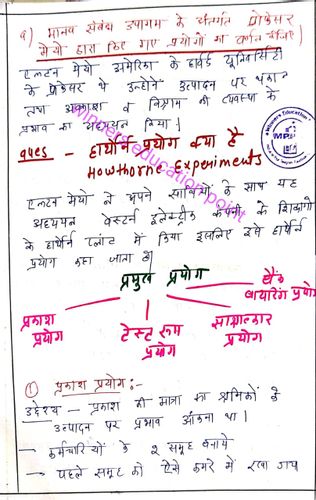 9) मानव संबंध उपागम के अंतर्गत प्रोफेसर
मेयो द्वारा किए गए प्रयोगों का वर्णन कीजिए।
एल्टन मेयो अमेरिका के हार्वर्ड यूनिवर्सिटी
के प्रोफेसर थे उन्होंने उत्पादन पर थकान
तथा अवकाश व विश्राम की व्यवस्था के
प्रभाव का अध्ययन किया।
ques - हाथोर्न प्रयोग क्या है
Howthorne Experiments
एल्टन मेयो ने अपने साथियों के साथ यह
अध्ययन वेस्टर्न इलेक्ट्रिक कंपनी के शिकागो
के हाथोर्न प्लांट में किया इसलिए इसे हाथोर्न
प्रयोग कहा जाता है।
प्रमुख प्रयोग
बैंक
वायरिंग प्रयोग
प्रकाश
प्रयोग
टेस्ट रूम
प्रयोग
साक्षात्कार
प्रयोग
① प्रकाश प्रयोग :-
उद्देश्य - प्रकाश की मात्रा का श्रमिकों के
उत्पादन पर प्रभाव आंकना था।
- कर्मचारियों के 2 समूह बनाये
- पहले समूह को ऐसे कमरे में रखा गया
winners education point